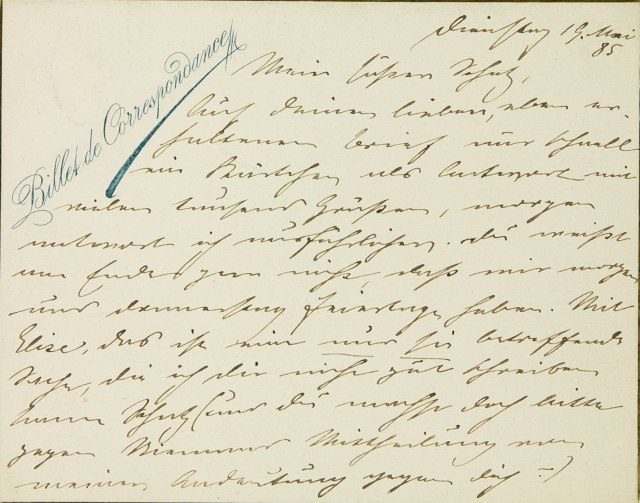 Billet de Correspondance
Dienstag 19. Mai
85
Mein süßer Schatz,
Auf deinen lieben, eben er-
haltenen Brief nur schnell
ein Kärtchen als Antwort mit
vielen tausend Grüßen, morgen
antwort ich ausführlicher. Du weißt
am Ende gar nicht, daß wir morgen
und donnerstag Feiertage haben. Mit
Elise, das ist eine nur sie betreffende
Sache, die ich dir nicht gut schreiben
kann Schatz (und du machst doch bitte
gegen Niemand Mittheilung von
meiner Andeutung gegen dich –)